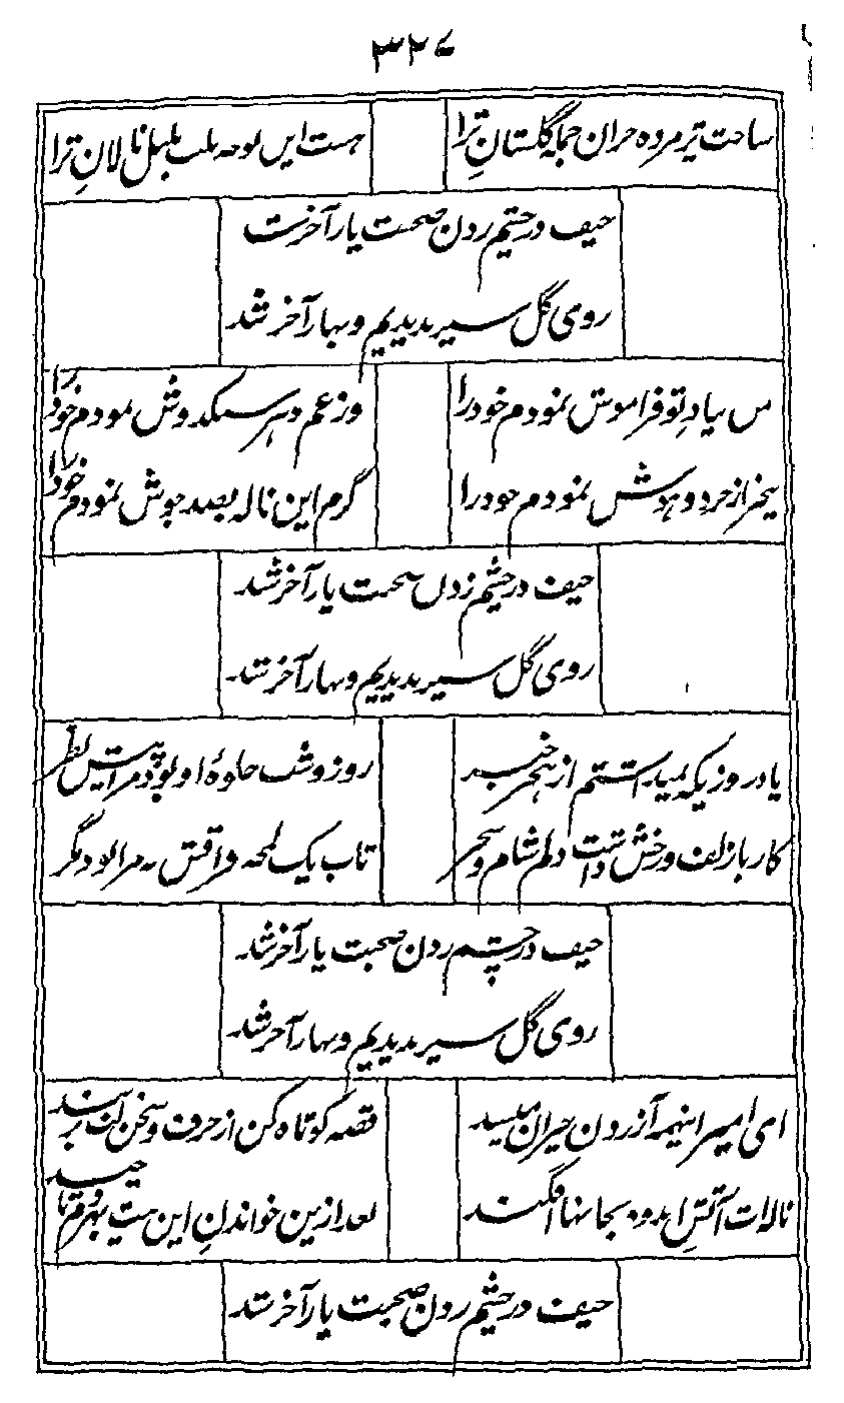 ۳۲۷
ساخت پژمرده خزان جمله گلستانِ ترا
هست این نوحه بلب بلبل نالانِ ترا
حیف در چشم زدن صحبت یار آخر شد
روی گل سیر ندیدیم و بهار آخر شد
من بیادِ تو فراموش نمودم خود را
وز غم دہر سبکدوش نمودم خود را
بیخبر از خرد و ہوش نمودم خود را
گرم این ناله بصد جوش نمودم خود را
حیف در چشم زدن صحبت یار آخر شد
روی گل سیر ندیدیم و بهار آخر شد
یاد روزیکه نمیداشتم از ہجر خبر
روز و شب جلوۂ او بود مرا پیش نظر
کار با زلف و رخش داشت دلم شام و سحر
تاب یک لمحه فراقش نه مرا بود مگر
حیف در چشم زدن صحبت یار آخر شد
روی گل سیر ندیدیم و بهار آخر شد
ای امیر اینہمه آزردن
قصه کوتاه کن از حرف و سخن لب بر بند
نالہات آتش اندوه بجانها افگند
بعد ازین خواندنِ این بیت بهر دم تا چند
حیف در چشم زدن صحبت یار آخر شد